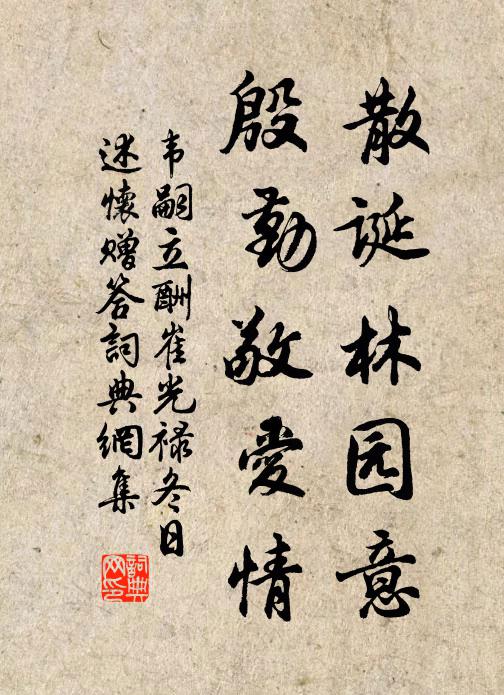 散誕林园意
殷勤敬愛情
韦嗣立酬崔光禄冬日
述懷赠答詞典網集
詞典网印